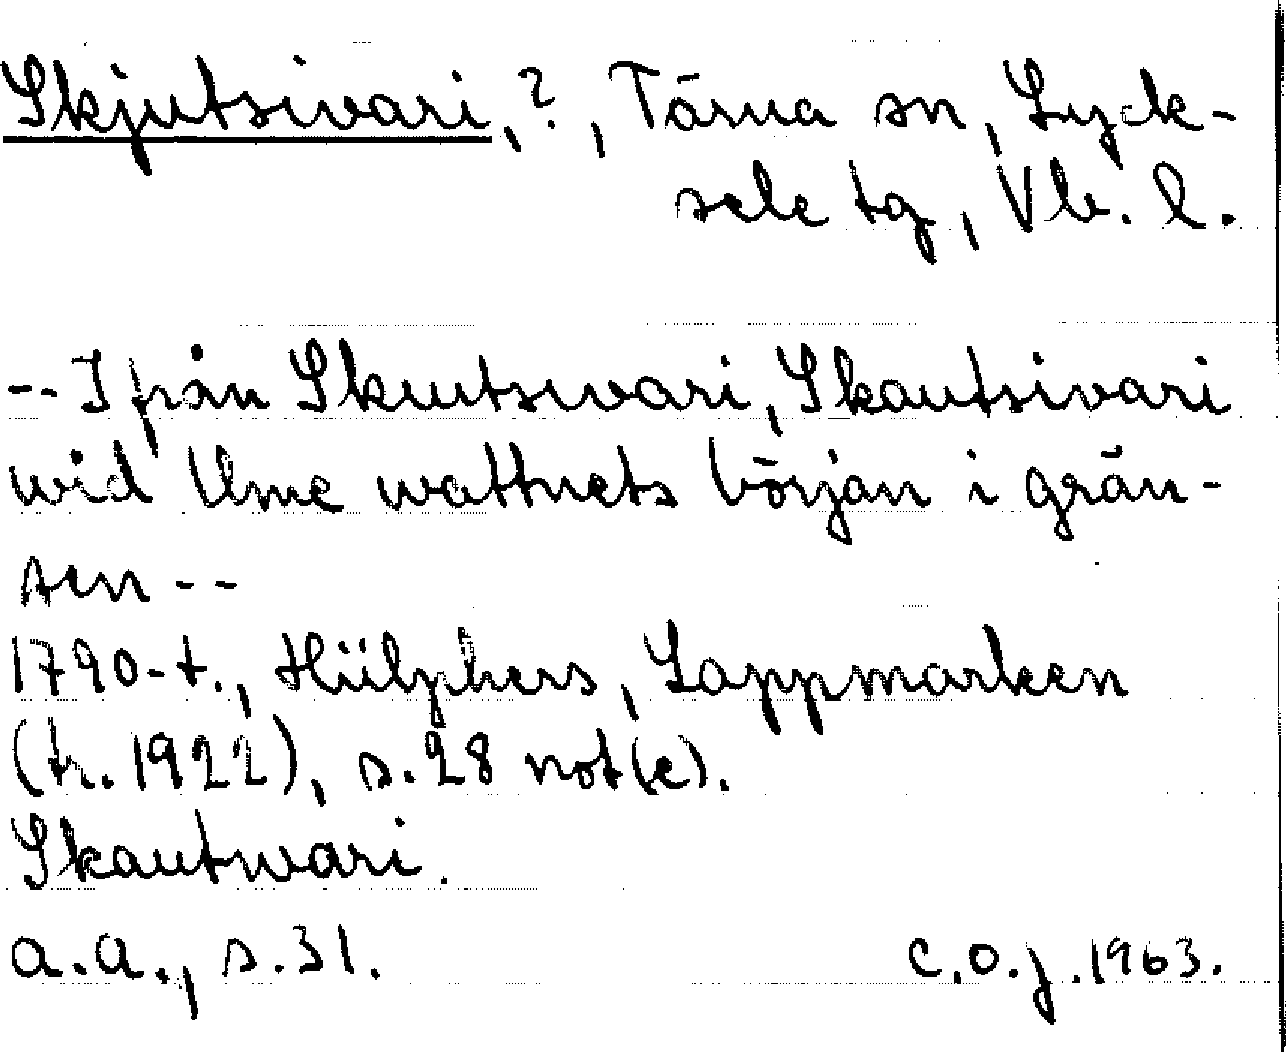 Skjutsivari, ?, Tärna sn, Lyck-
sele tg, Vb. l.
-- Ifrån Skutsivari, Skautsivari
wid Ume wattnets början i grän-
sen --
1790-t., Hülphers, Lappmarken
(tr. 1922), s. 28 not(e).
Skautwari.
a.a., s. 31. C.O.J. 1963.